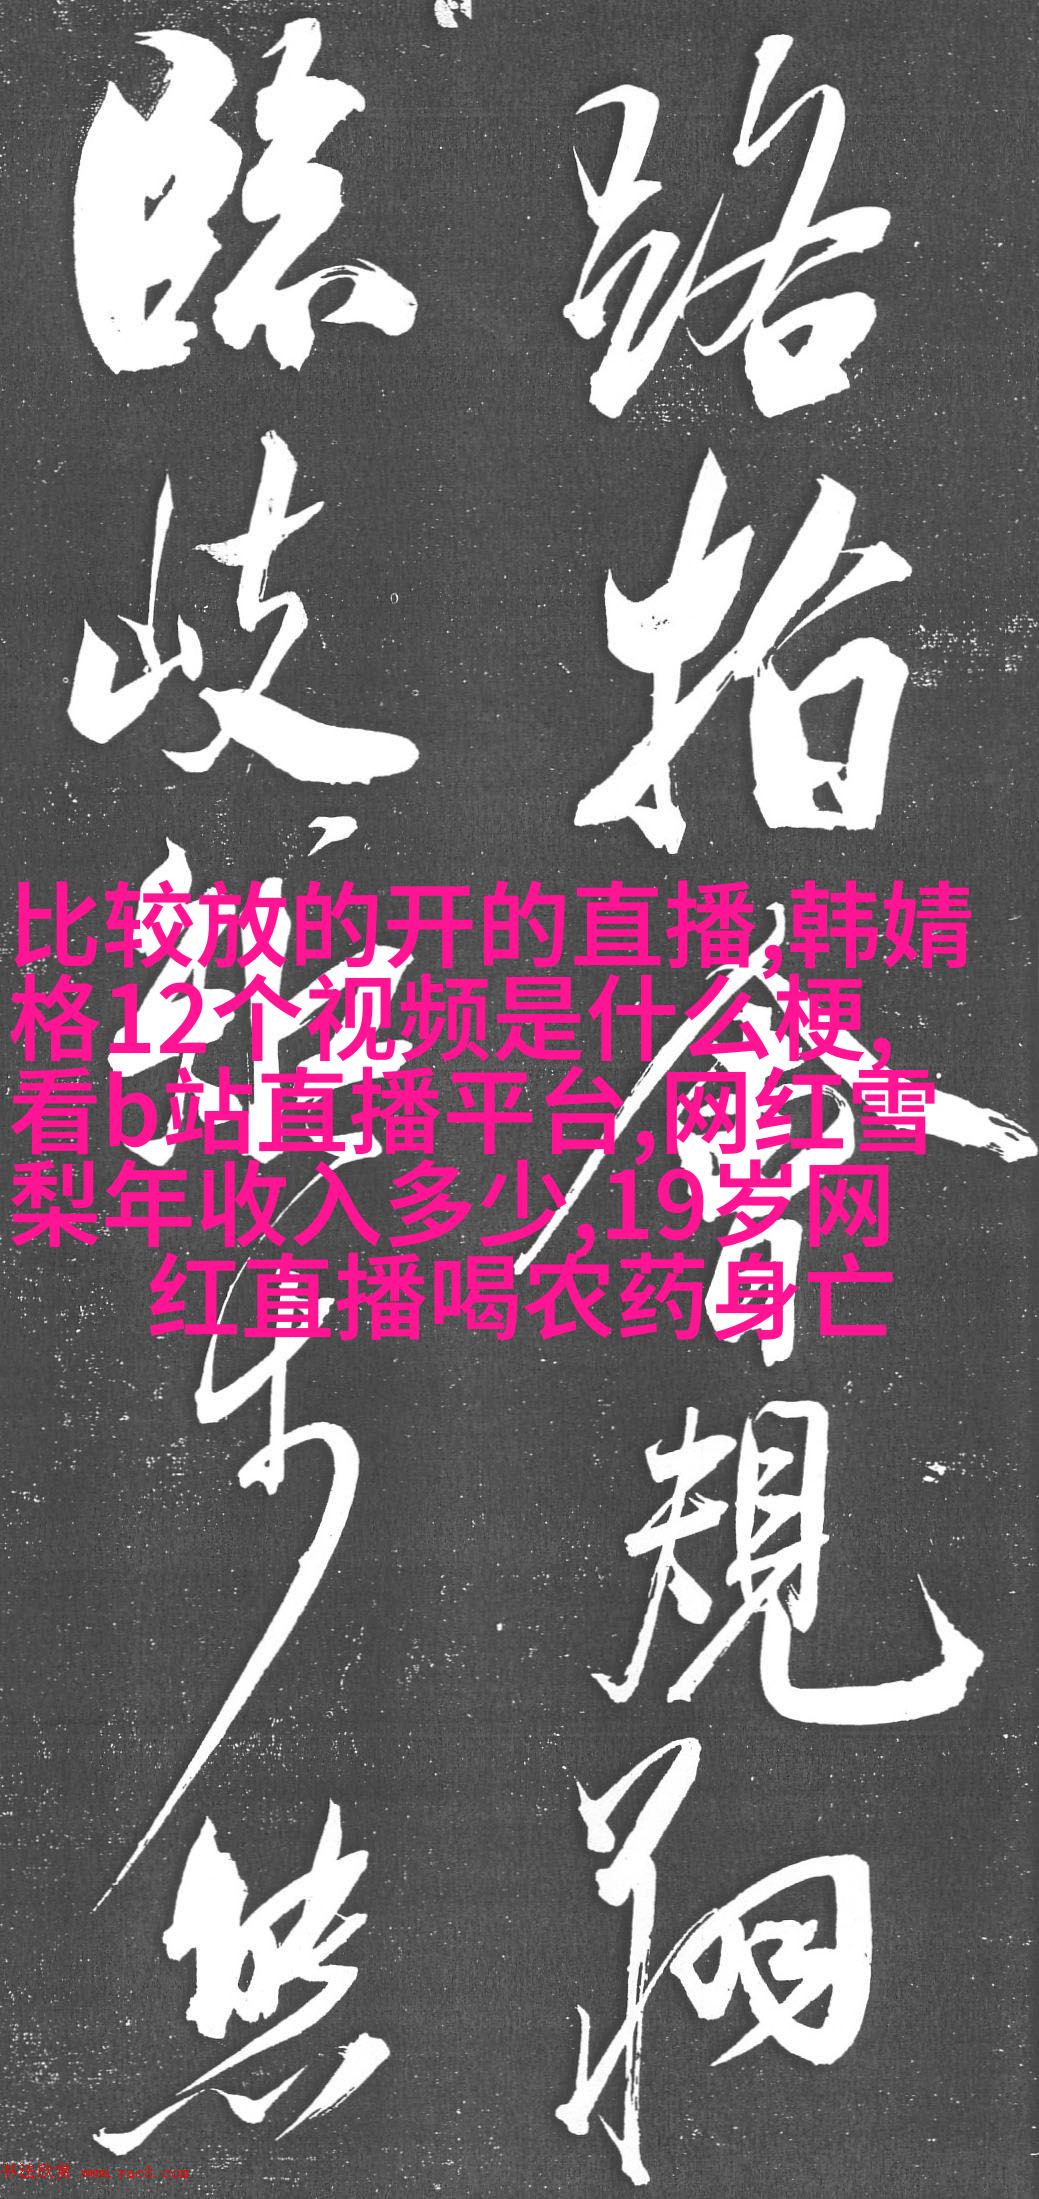 路指規翔
臨岐步然
比较放的开的直播,韩婧
格12个视频是什么梗,
看b站直播平台,网红雪
梨年收入多少,19岁网
红直播喝农药身亡
书法欣赏 www.yac8.com